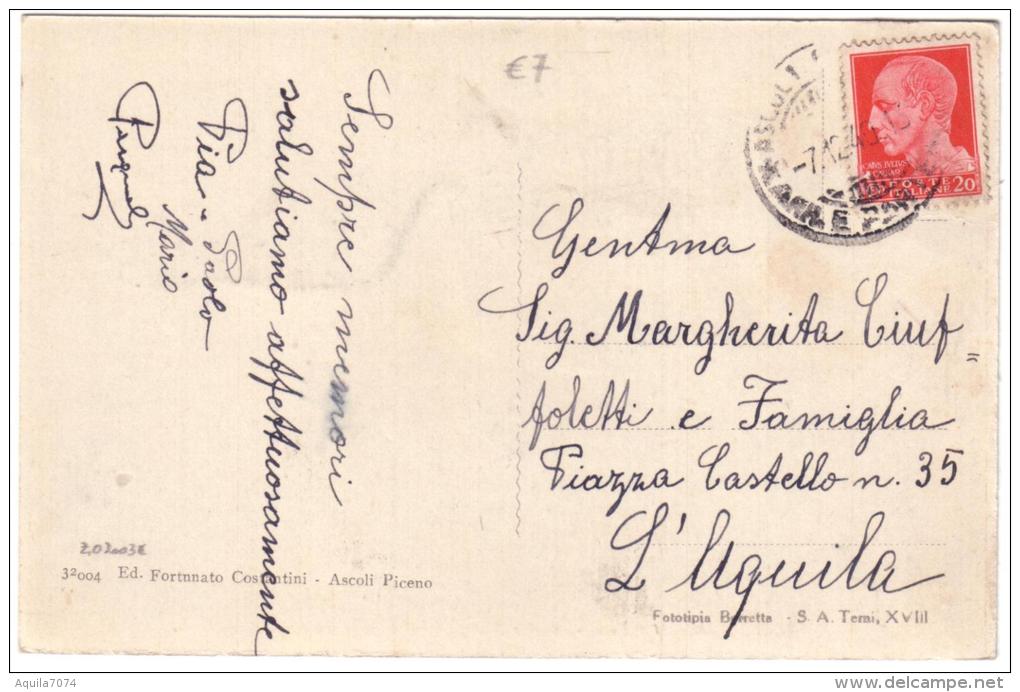 €7
Sempre memori
salutiamo affettuosamente
Pia - Paolo
Mario
ASCOLI
-7.12.4
CAIVS IVLIVS
CAESAR
POSTE
ITALIANE 20
Gentma
Sig. Margherita Ciuf=
foletti e Famiglia
Piazza Castello n. 35
L'Aquila
32004 Ed. Fortunato Costantini - Ascoli Piceno
Fototipia Berretta - S. A. Terni, XVIII
Aquila7074
delcampe.net